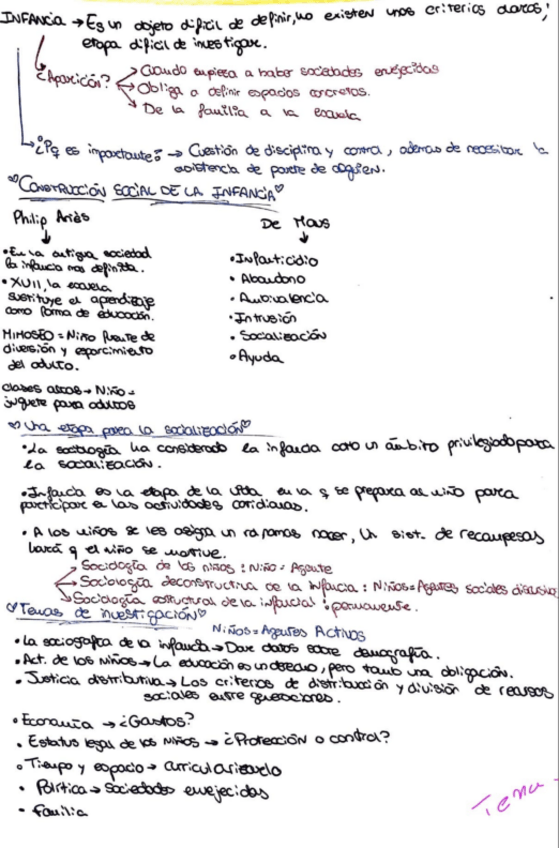 INFANCIA → Es un objeto difícil de definir, no existen unos criterios claros,
etapa difícil de investigar.
¿Aparición? → Cuando empieza a haber sociedades envejecidas
→ Obliga a definir espacios concretos.
→ De la familia a la escuela
→ ¿Pq es importante? → Cuestión de disciplina y control, además de necesitar la
asistencia de parte de alguien.
♡CONSTRUCCIÓN SOCIAL DE LA INFANCIA♡
Philip Ariès
• En la antigua sociedad
la infancia definida.
• XVII, la escuela
sustituye el aprendizaje
como forma de educación.
MIMOSEO = Niño fuente de
diversión y esparcimiento
del adulto.
clases altas → Niño =
juguete para adultos
De Maus
• Infanticidio
• Abandono
• Ambivalencia
• Intrusión
• Socialización
• Ayuda
♡ Una etapa para la socialización♡
• La sociología ha considerado la infancia como un ámbito privilegiado para
la socialización.
• Infancia es la etapa de la vida en la q se prepara al niño para
participar en las actividades cotidianas.
• A los niños se les asigna un rol nacer, Un sist. de recompesas
hará q el niño se motive.
→ Sociología de los niños : Niño = Agente
→ Sociología deconstructiva de la infancia : Niños = Agentes sociales
→ Sociología estructural de la infancia : permanente.
♡Temas de investigación♡
Niños = Agentes ACTIVOS
• La sociografía de la infancia → Dar datos sobre demografía.
• Act. de los Niños → La educación es un derecho, pero tamb una obligación.
• Justicia distributiva → Los criterios de distribución y división de recursos
sociales entre generaciones.
• Economía → ¿Gastos?
• Estatus legal de los Niños → ¿Protección o control?
• Tiempo y espacio →
• Política → Sociedades envejecidas
• Familia
Tema